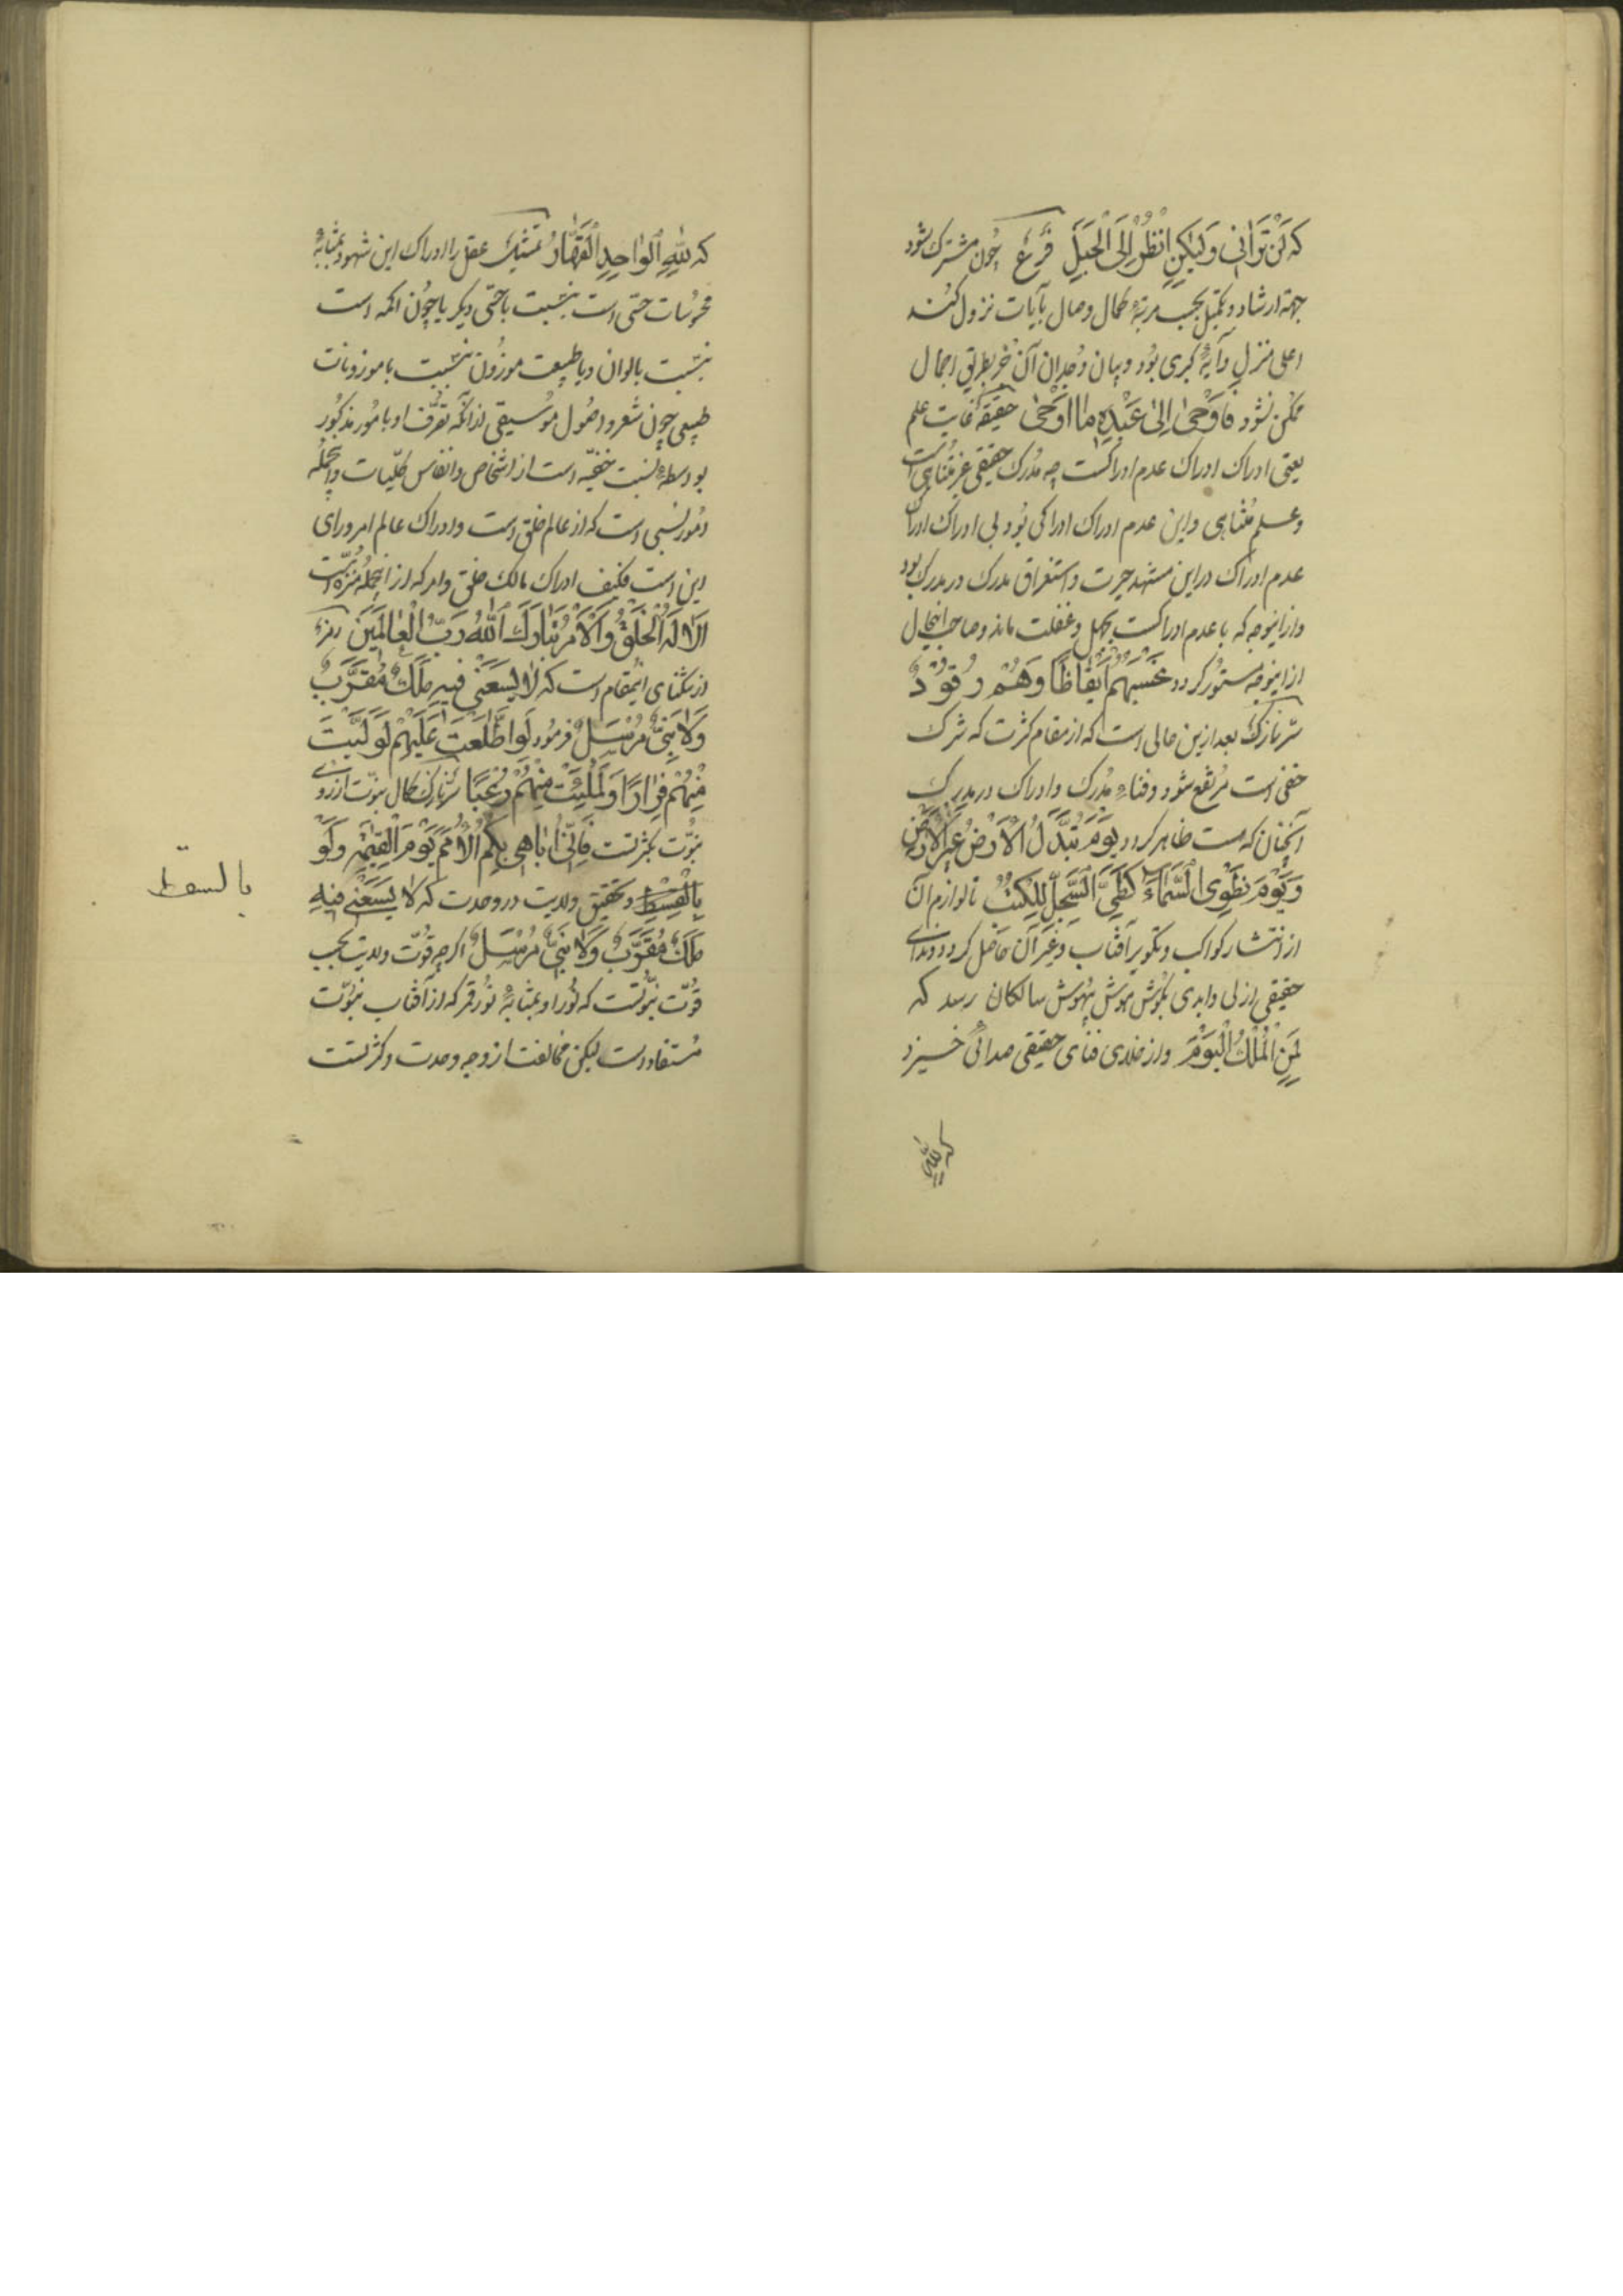 که لَنْ تَرَانِی وَلٰکِنِ انْظُرْ اِلَی الْجَبَلِ فَرْعٌ چون مشترک شود
جهة ارشاد و تکمیل بحسب مرتبهٔ کمال وصال بآیات نزول کند
اعلی منزل و آیهٔ کبری بود و بیان وجدان آن جز بطریق اجمال
ممکن نشود فَاَوْحٰی اِلٰی عَبْدِهٖ مٰا اَوْحٰی حقیقة غایت علم
یعنی ادراک ادراک عدم ادراکست چه مدرک حقیقی غیر متناهی است
و علم متناهی و این عدم ادراک ادراکی بود بی ادراک ادراک
عدم ادراک در این مشهد حیرت و استغراق مدرک در مدرک بود
و از اینوجه که با عدم ادراکست بجهل و غفلت ماند و صاحب اینحال
از اینوجه مستور گردد تَحْسَبُهُمْ اَیْقَاظًا وَهُمْ رُقُوْدٌ
سرّ نازک بعد ازین حالی است که از مقام کثرت که شرک
خفی است مرتفع شود و فناء مدرک و ادراک در مدرک
آنچنان که هست ظاهر گردد یَوْمَ تُبَدَّلُ الْاَرْضُ غَیْرَ الْاَرْضِ
وَیَوْمَ نَطْوِی السَّمَاءَ کَطَیِّ السِّجِلِّ لِلْکُتُبِ تا لوازم آن
از انتشار کواکب و تکویر آفتاب و غیر آن حاصل گردد و ندای
حقیقی ازلی و ابدی بگوش هوش بیهوش سالکان رسد که
لِمَنِ الْمُلْکُ الْیَوْمَ و از فنای حقیقی صدائی خیزد
که للّٰهِ
که لِلّٰهِ الْوَاحِدِ الْقَهَّارِ تمثیل عقل را ادراک این شهود بمثابهٔ
محسوسات حسّی است بنسبت با حسّی دیگر یا چون اکمه است
بنسبت با الوان و با طبیعت موزون بنسبت با موزونات
طبیعی چون شعر و اصول موسیقی لذا آنکه تعرّف او بامور مذکور
بواسطهٔ نسبت خفیّه است از اشخاص و انفاس کلّیات و اینجمله
امور نسبی است که از عالم خلق است و ادراک عالم امر ورای
این است فکیف ادراک مالک خلق و امر که از اینجمله منزّه است
اَلَا لَهُ الْخَلْقُ وَالْاَمْرُ تَبَارَکَ اللّٰهُ رَبُّ الْعَالَمِیْنَ رمز
از تنگنای اینمقام است که لَا یَسَعُنِیْ فِیْهِ مَلَکٌ مُقَرَّبٌ
وَلَا نَبِیٌّ مُرْسَلٌ فرمود لَوِ اطَّلَعْتَ عَلَیْهِمْ لَوَلَّیْتَ
مِنْهُمْ فِرَارًا وَلَمُلِئْتَ مِنْهُمْ رُعْبًا سرّ نازک کمال نبوّت از روی
نبوّت بکثرتست فَاِنِّیْ اُبَاهِیْ بِکُمُ الْاُمَمَ یَوْمَ الْقِیٰمَةِ وَلَوْ
بِالْقِسْطِ و تحقیق ولایت در وحدت که لَا یَسَعُنِیْ فِیْهِ
بالسقط
مَلَکٌ مُقَرَّبٌ وَلَا نَبِیٌّ مُرْسَلٌ اگرچه قوّت ولایت بحسب
قوّت نبوّتست که نور او بمثابهٔ نور قمر که از آفتاب نبوّت
مستفاد است لیکن مخالفت از وجه وحدت و کثرتست